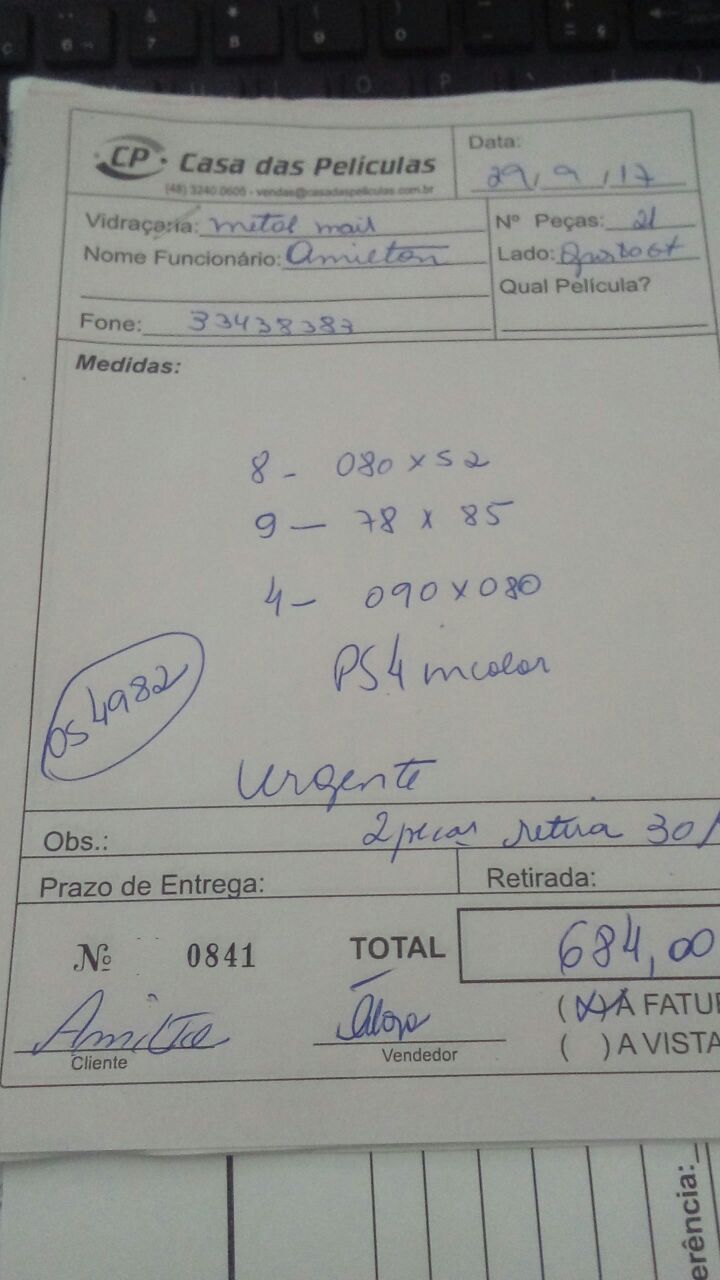 CP Casa das Películas
(48) 3240.0606 - vendas@casadaspeliculas.com.br
Data:
29/9/17
Vidraçaria: metal mail
Nº Peças: 21
Nome Funcionário: Amilton
Lado:
Qual Película?
Fone: 33438383
Medidas:
8 - 080 x 52
9 - 78 x 85
4 - 090 x 080
PS4 incolor
OS 4982
Urgente
Obs.: 2 peças retira 30/
Prazo de Entrega:
Retirada:
Nº 0841
TOTAL 684,00
(X) A FATU
( ) A VISTA
Cliente
Vendedor
erência: